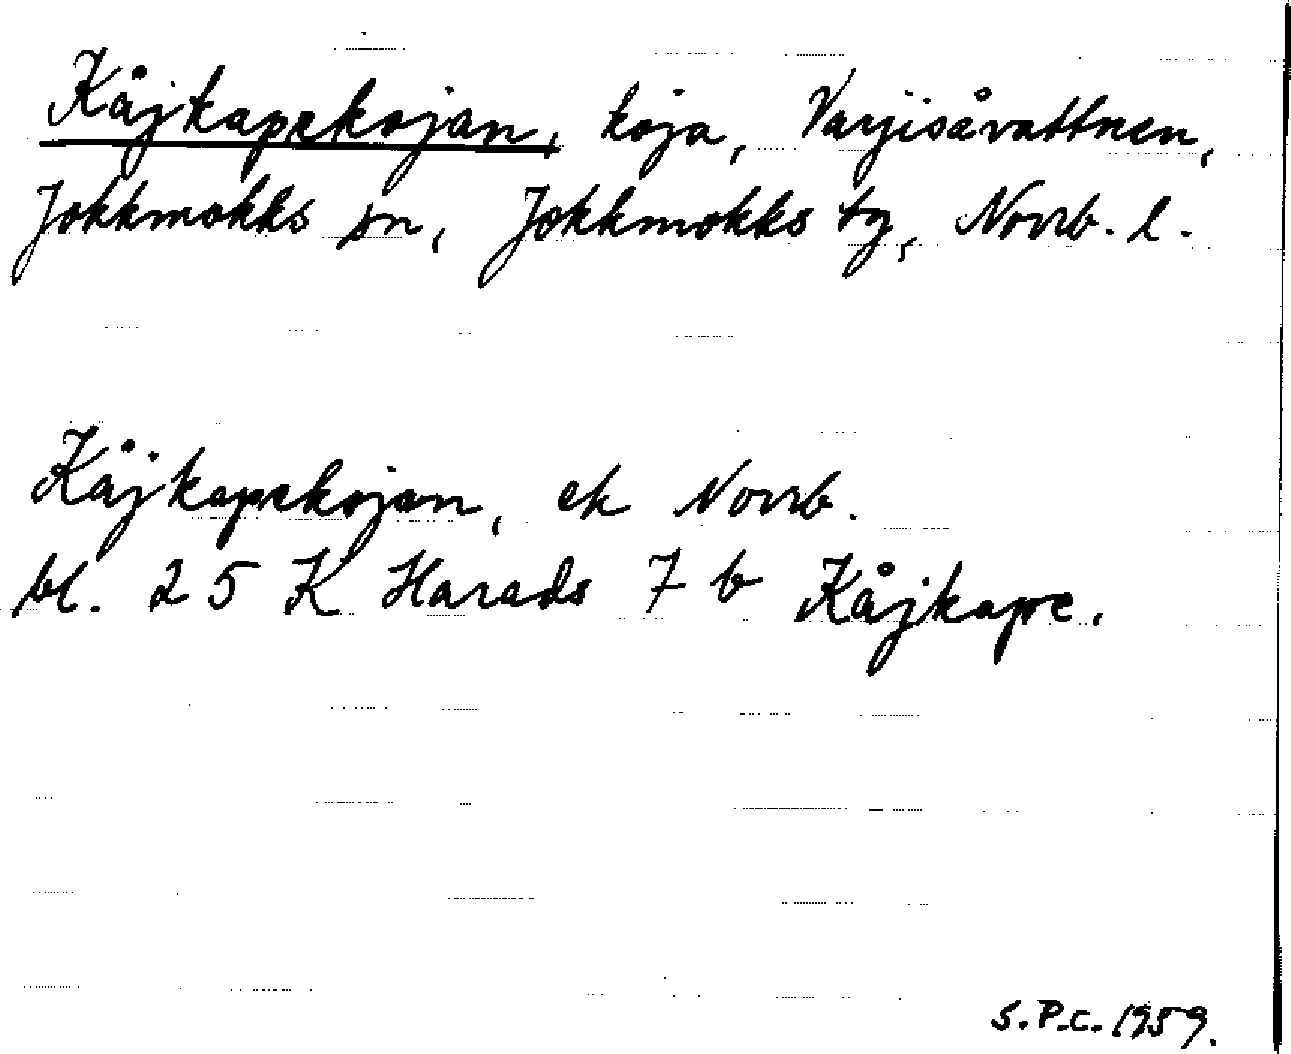 Kåjkapekojan, koja, Varjisåvattnen,
Jokkmokks sn, Jokkmokks tg, Norrb. l.
Kåjkapekojan, ek Norrb.
bl. 25 K Harads 7 b Kåjkape.
S.P.C. 1959.